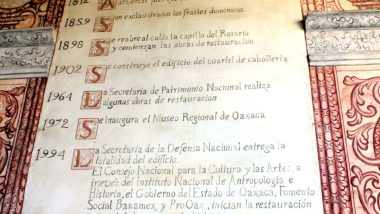 1812
1859 Son exclaustrados los frailes dominicos
1898 Se reabre al culto la capilla del Rosario
y comienzan las obras de restauración
1902 Se construye el edificio del cuartel de caballería
1964 La Secretaría de Patrimonio Nacional realiza
algunas obras de restauración
1972 Se inaugura el Museo Regional de Oaxaca
1994 La Secretaría de la Defensa Nacional entrega la
totalidad del edificio.
El Consejo Nacional para la Cultura y las Artes, a
través del Instituto Nacional de Antropología e
Historia, el Gobierno del Estado de Oaxaca, Fomento
Social Banamex, y ProOax, inician la restauración